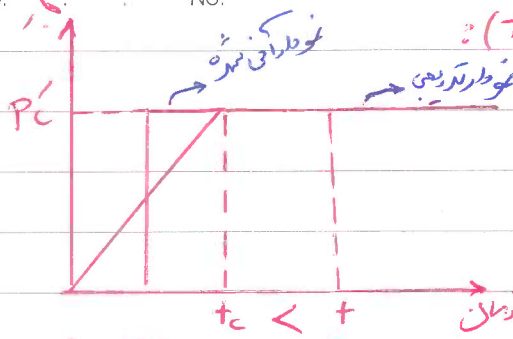 No.
نمودار آنی شده
: (T
نمودار تدریجی
P'c
tc < t
زمان